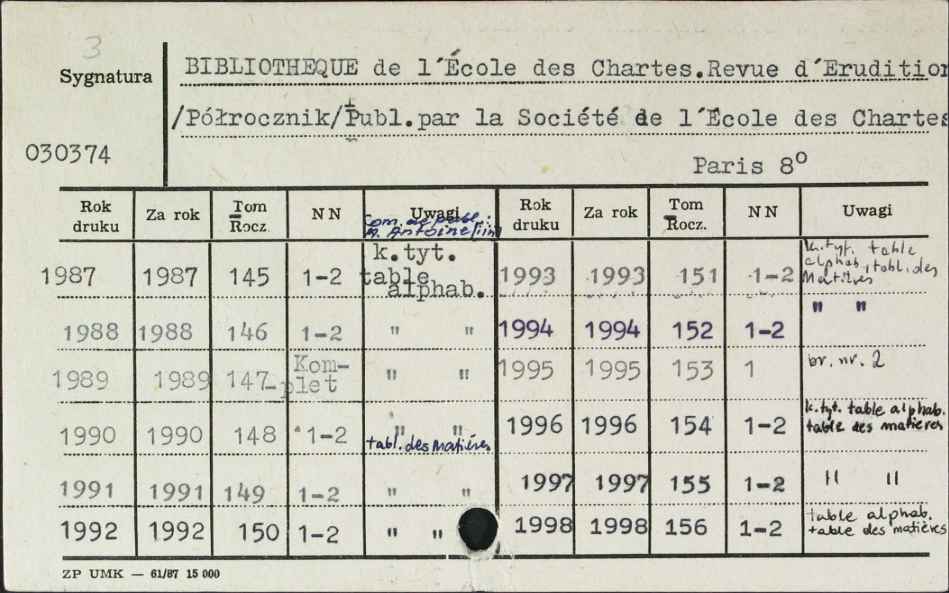 3
Sygnatura
BIBLIOTHEQUE de l´École des Chartes.Revue d´Erudition
/Półrocznik/Publ.par la Société de l´École des Chartes
030374
Paris 8º
Rok druku Za rok Tom Rocz. NN Uwagi Rok druku Za rok Tom Rocz. NN Uwagi
1987 1987 145 1-2 k.tyt. table alphab. 1993 1993 151 1-2 k.tyt. table alphab., tabl. des Matières
1988 1988 146 1-2 " " 1994 1994 152 1-2 " "
1989 1989 147 Kom-plet " " 1995 1995 153 1 br. nr. 2
1990 1990 148 1-2 " " tabl. des Matières 1996 1996 154 1-2 k.tyt. table alphab. table des matières
1991 1991 149 1-2 " " 1997 1997 155 1-2 " "
1992 1992 150 1-2 " " 1998 1998 156 1-2 table alphab. table des matières
ZP UMK — 61/87 15 000